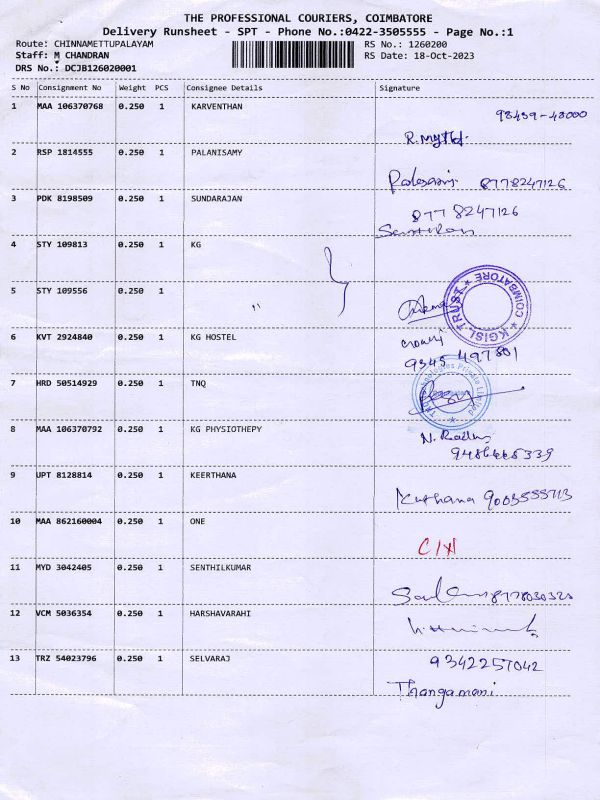 THE PROFESSIONAL COURIERS, COIMBATORE
Delivery Runsheet - SPT - Phone No.:0422-3505555 - Page No.:1
Route: CHINNAMETTUPALAYAM RS No.: 1260200
Staff: M CHANDRAN RS Date: 18-Oct-2023
DRS No.: DCJB126020001
S No Consignment No Weight PCS Consignee Details Signature
1 MAA 106370768 0.250 1 KARVENTHAN
98459-48000
2 RSP 1814555 0.250 1 PALANISAMY
8778247126
3 PDK 8198509 0.250 1 SUNDARAJAN
8778247126
4 STY 109813 0.250 1 KG
KGISL TRUST * COIMBATORE *
5 STY 109556 0.250 1 "
6 KVT 2924840 0.250 1 KG HOSTEL
9345 497801
7 HRD 50514929 0.250 1 TNQ
Technologies Private Limited
8 MAA 106370792 0.250 1 KG PHYSIOTHEPY
9 UPT 8128814 0.250 1 KEERTHANA
Kirthana
10 MAA 862160004 0.250 1 ONE
11 MYD 3042405 0.250 1 SENTHILKUMAR
12 VCM 5036354 0.250 1 HARSHAVARAHI
13 TRZ 54023796 0.250 1 SELVARAJ
9342257042
Thangamani